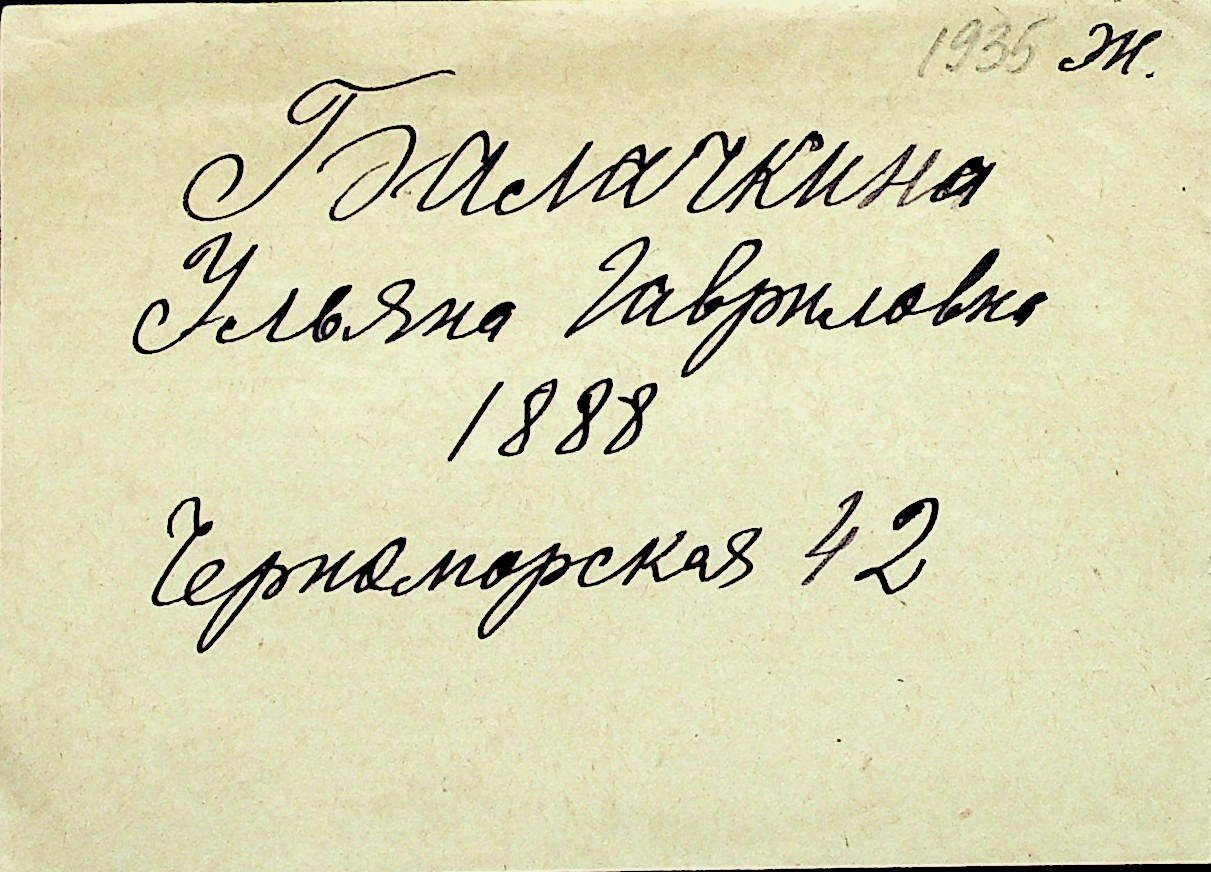 1935 ж.
Балачкина
Ульяна Гавриловна
1888
Черноморская 42